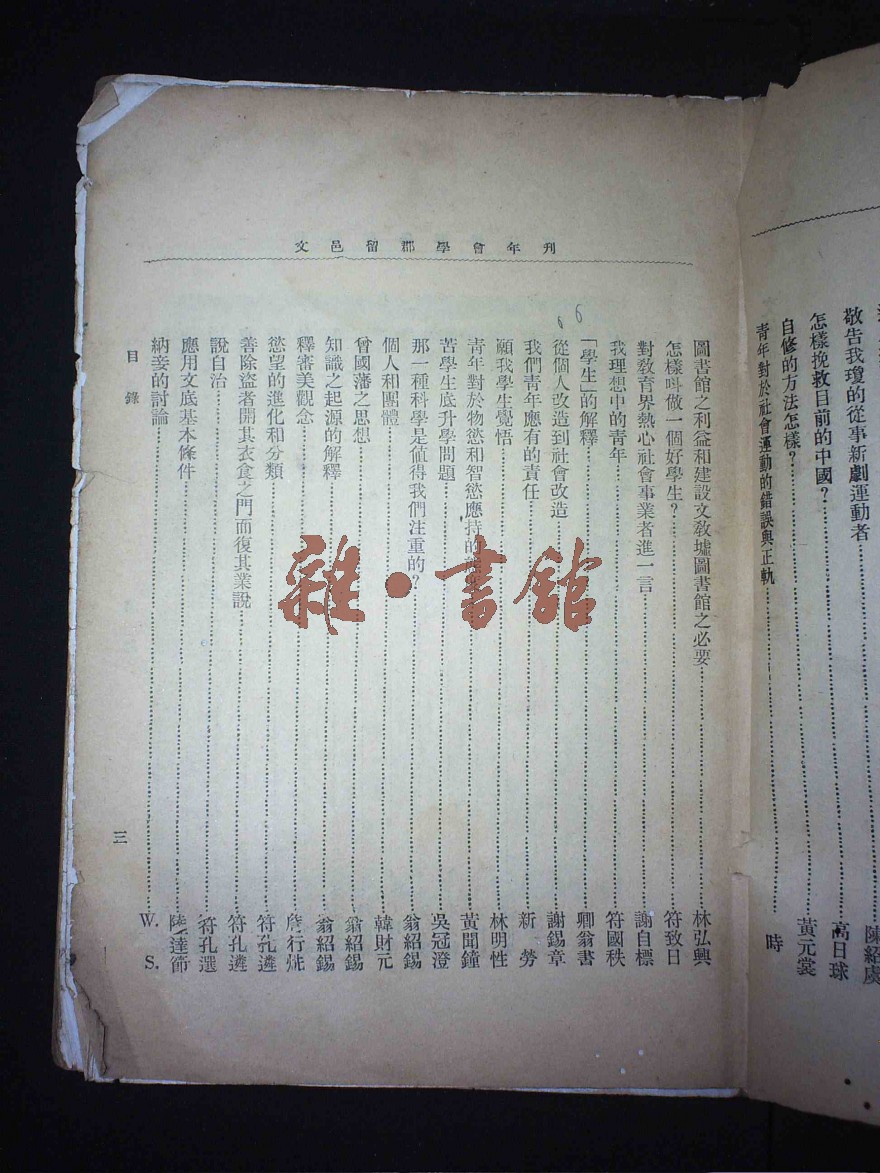 敬告我瓊的從事新劇運動者 陳紹虞
怎樣挽救目前的中國？ 高日球
自修的方法怎樣？ 黃元裳
青年對於社會運動的錯誤與正軌 時
刊年會學郡留邑文
圖書館之利益和建設文教墟圖書館之必要 林弘興
怎樣叫做一個好學生？ 符致日
對敎育界熱心社會事業者進一言 謝自標
我理想中的青年 符國秩
「學生」的解釋 卿翁書
從個人改造到社會改造 謝錫章
我們青年應有的責任 新勞
願我學生覺悟 林明性
青年對於物慾和智慾應持的 黃聞鐘
苦學生底升學問題 吳冠澄
那一種科學是値得我們注重的？ 翁紹錫
個人和團體 韓財元
曾國藩之思想 翁紹錫
知識之起源的解釋 翁紹錫
釋審美觀念 詹行烍
慾望的進化和分類 符孔遴
善除盜者開其衣食之門而復其業說 符孔遴
說自治 符孔選
應用文底基本條件 陸達節
納妾的討論 W. S.
目錄
三
雜·書館
66